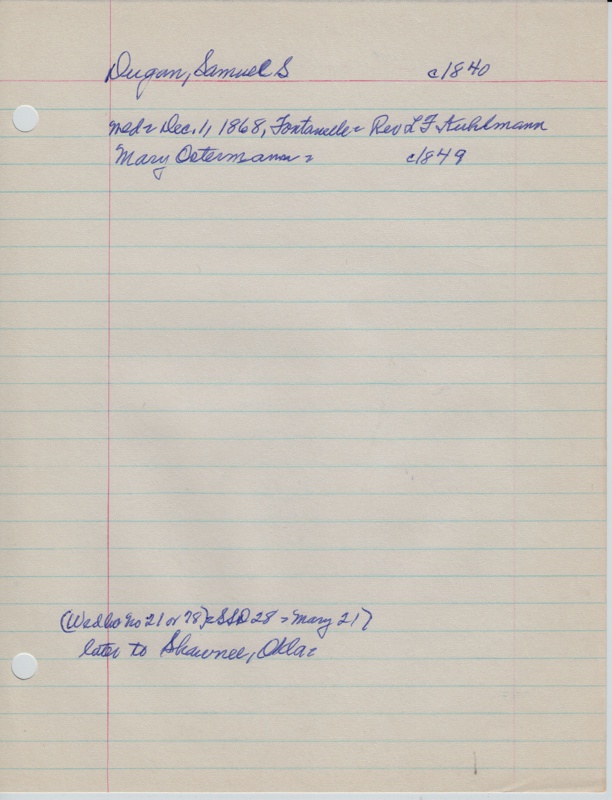 Dugan, Samuel S c1840
md= Dec. 1, 1868, Fontanelle= Rev L F Kuhlmann
Mary Ostermann = c1849
No 21 or 78)= SSD 28 = Mary 21)
later to Shawnee, Okla=